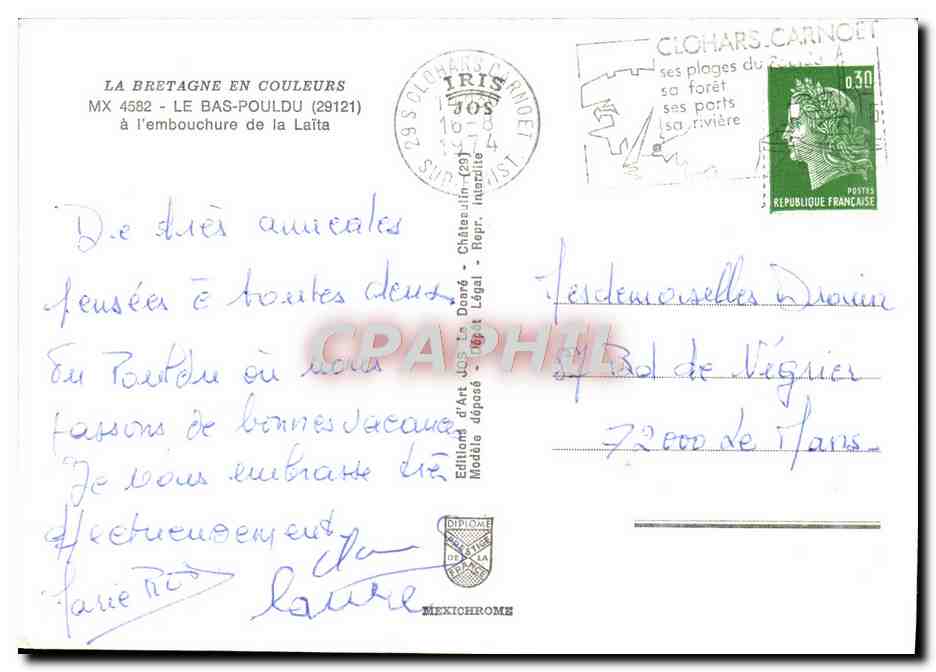 LA BRETAGNE EN COULEURS
MX 4582 - LE BAS-POULDU (29121)
à l'embouchure de la Laïta
29 S CLOHARS CARNOET
SUD FINIST.
16 - 8
1974
IRIS
JOS
CLOHARS-CARNOET
ses plages du
sa forêt
ses ports
sa rivière
0,30
POSTES
REPUBLIQUE FRANÇAISE
De très amicales
pensées à toutes deux
du Pouldu où nous
passons de bonnes vacances
Je vous embrasse très
affectueusement
Marie
Laure
Editions d'Art JOS Le Doaré - Châteaulin (29)
Modèle déposé - Dépôt Légal - Repr. interdite
Mesdemoiselles
Bd de Négrier
72000 Le Mans
CPAPHIL
DIPLOME
PRESTIGE
DE LA
FRANCE
MEXICHROME